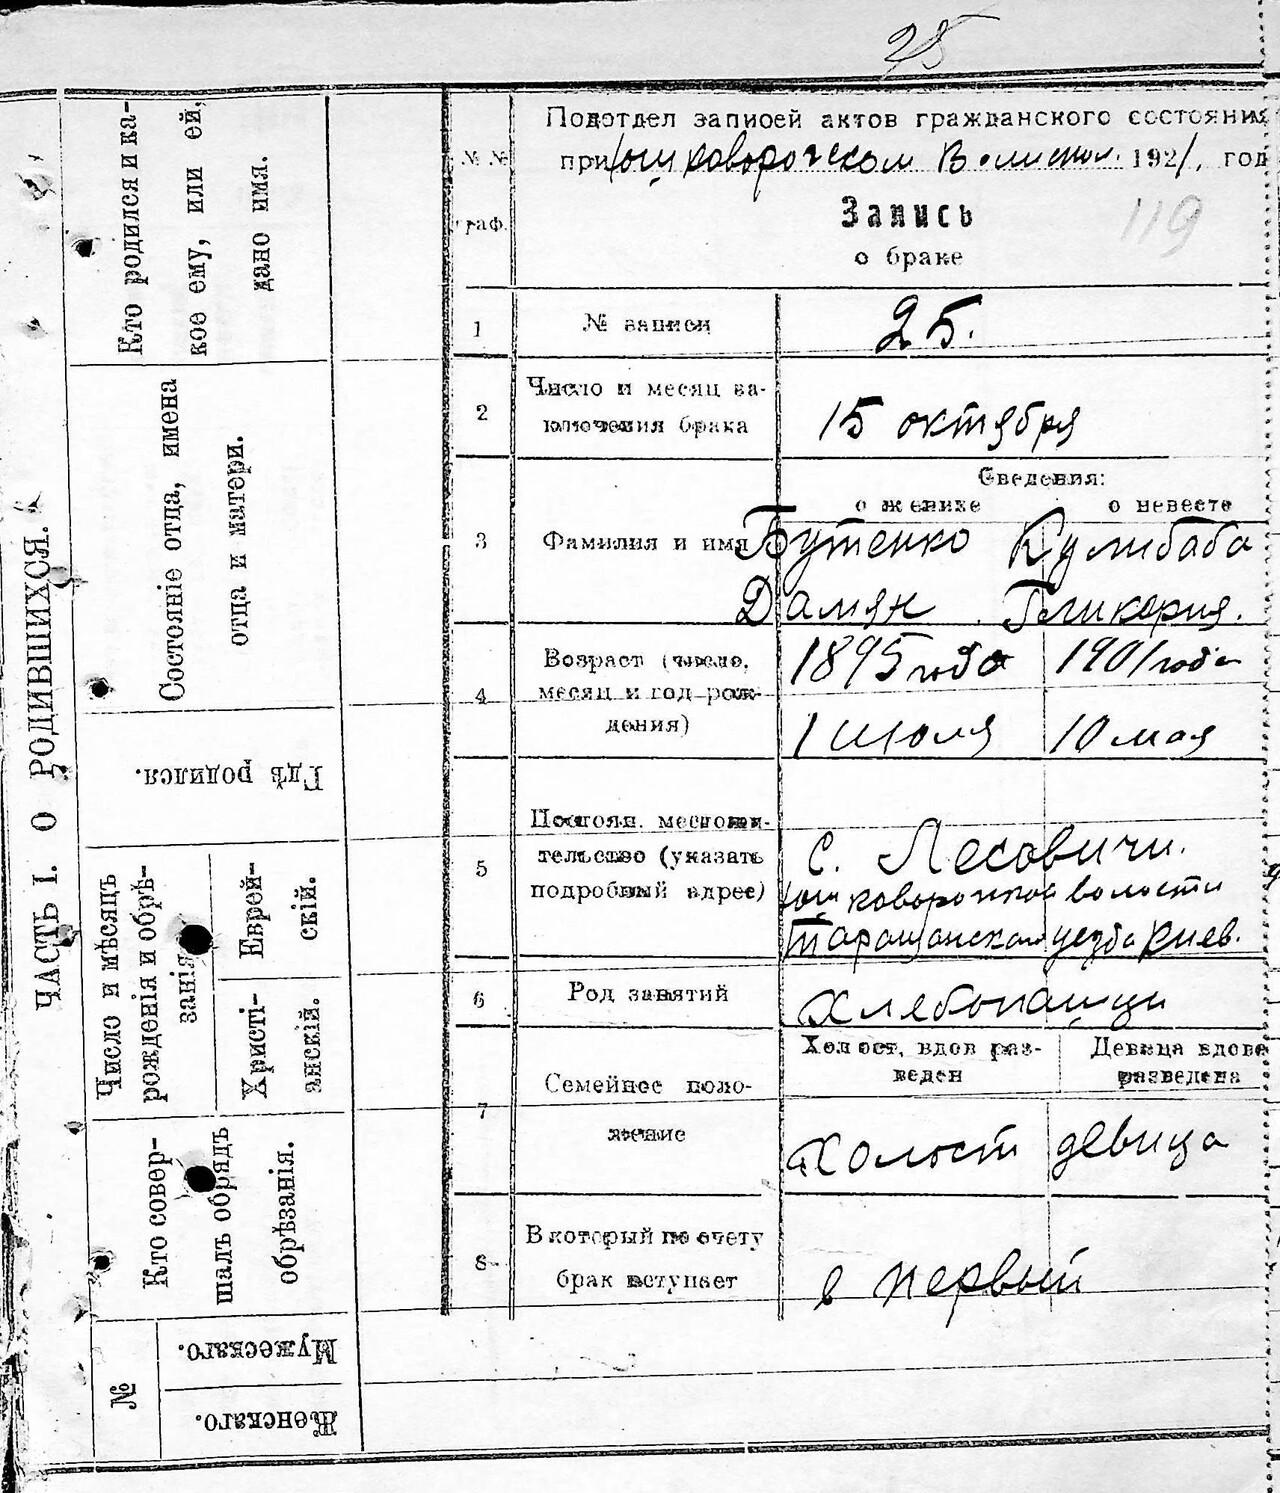 25
ЧАСТЬ I. О РОДИВШИХСЯ.
Кто родился и ка-
кое ему, или ей,
дано имя.
Состояніе отца, имена
отца и матери.
Гдѣ родился.
Число и мѣсяцъ
рожденія и обрѣ-
занія
Еврей-
скій.
Христі-
анскій.
Кто совер-
шалъ обрядъ
обрѣзанія.
№
Мужескаго.
Женскаго.
№ №
граф.
Подотдел записей актов гражданского состояния
при 1921 год
Запись
о браке
119
1 № записи 25.
2 Число и месяц за-
ключения брака 15 октября
Сведения:
о женихе о невесте
3 Фамилия и имя Бутенко Кулибаба
Дамян Гликерия.
4 Возраст (число, 1895 года 1901 года
месяц и год рож-
дения) 1 июля 10 мая
5 Постоян. местожи-
тельство (указать
подробный адрес)
с. Лесовичи.
волости
Таращанского уезда Киев.
6 Род занятий Хлебопашци
7 Семейное поло-
жение
Холост, вдов раз-
веден
Девица вдова
разведена
Холост девица
8 В который по счету
брак вступает в первый